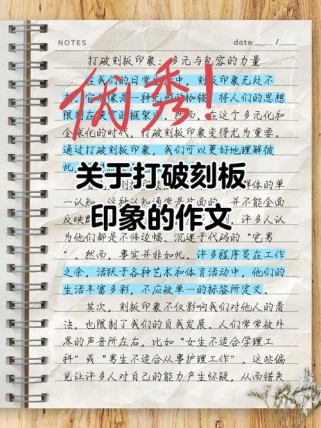 NOTES
date
打破刻板印象：多元与包容的力量
在我们的日常生活中，刻板印象无处不
将人们的思想
优秀！
在这个多元化和
全球化的时代，打破刻板印象变得尤为重要。
通过打破刻板印象，我们可以更好地理解彼
关于打破刻板
印象的作文
群体的单
一认知。
并不能全面
许多人认
为他们都是不修边幅、沉迷于代码的“宅男
”。然而，事实并非如此。许多程序员在工作
之余，活跃于各种艺术和体育活动中，他们的
生活丰富多彩，不应被单一的标签所定义。
其次，刻板印象不仅影响我们对他人的看
法，也限制了我们的自我发展。人们常常被外
界的声音所左右，比如“女生不适合学理工
科”或“男生不适合从事护理工作”。这些偏
见让许多人对自己的能力产生怀疑，从而错失